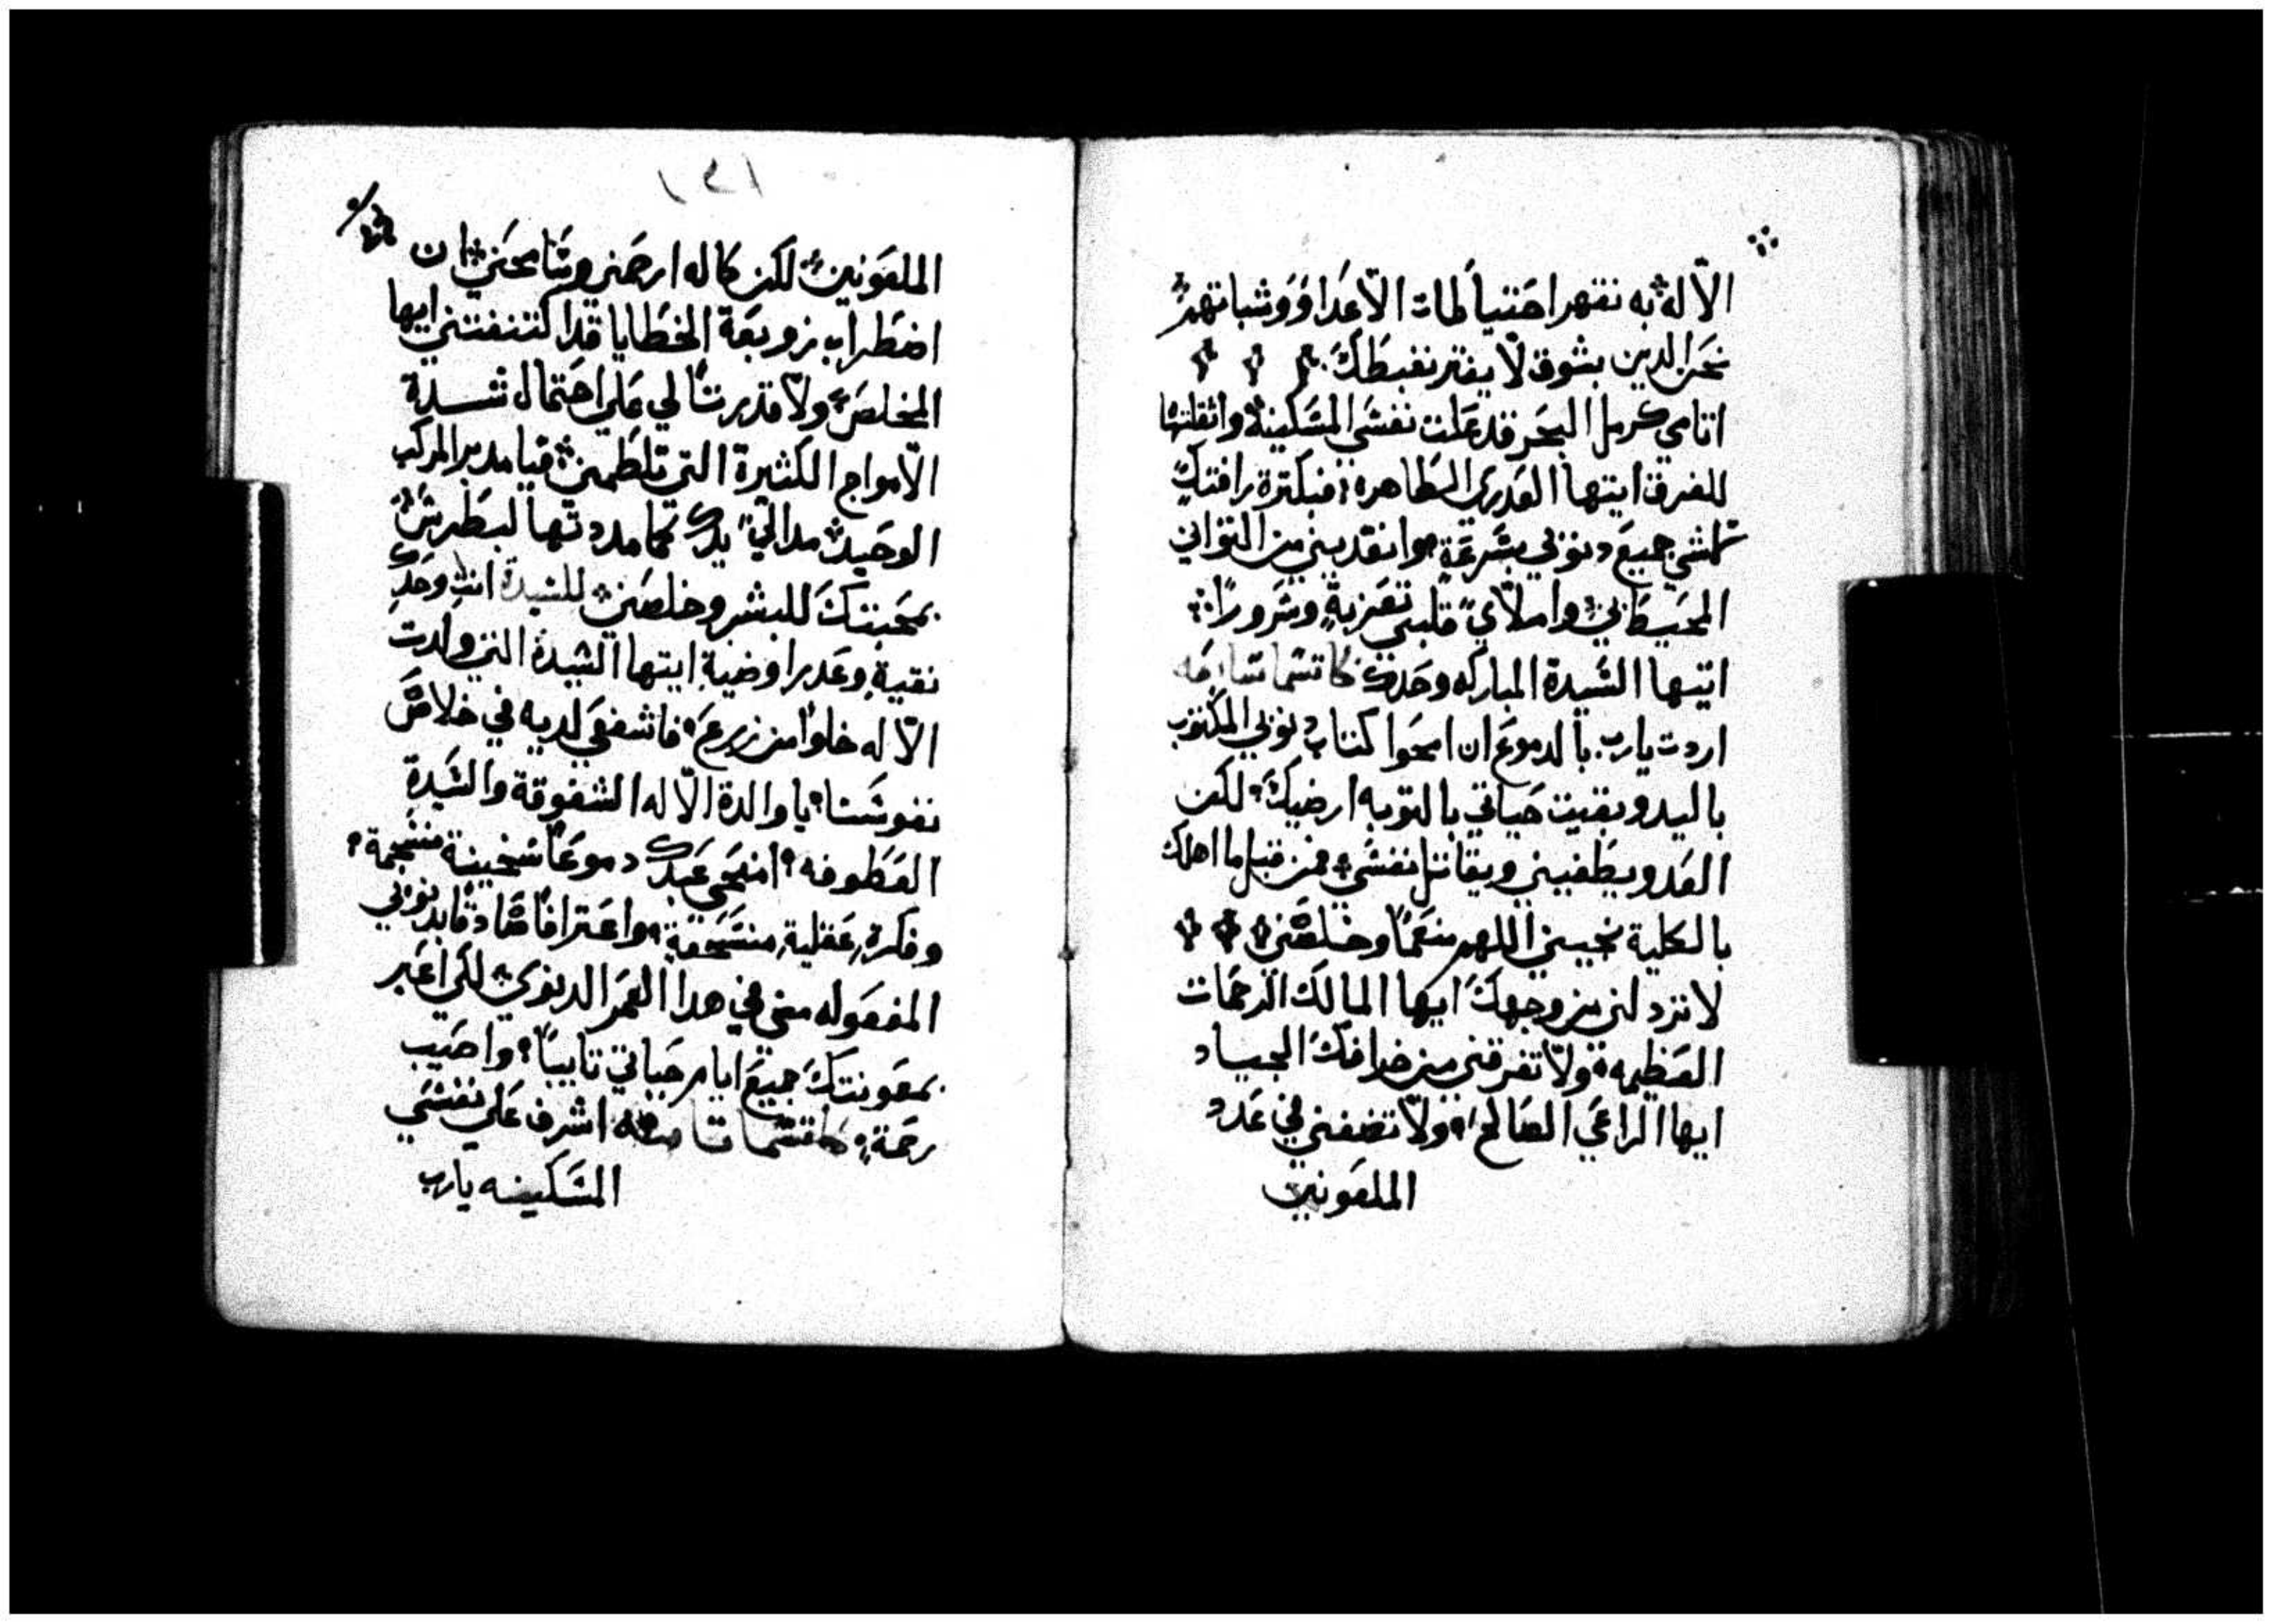 الاله به نقهر احتياطات الاعدا ووثباتهم
نحن الدين بشوق لا يفتر نغبطك
اتامي كرمل البحر قد علت نفسي المسكينة واثقلتها
للغرق ايتها العدرى الطاهره فبكترة رافتك
جميع دنوبي بسرعة وانقديني من التواني
المحيط بي واملاي قلبي تعزية وسرورا
ايتها السيدة المباركه وحدك
اردت يارب بالدموع ان امحوا كتاب دنوبي المكتوب
باليد وبقيت حياتي بالتوبه ارضيك لكن
العدو يطغيني ويقاتل نفسي فمن قبل ما اهلك
بالكلية نجيني اللهم منعما وخلصني
لا تردلني من وجهك ايها المالك الرحمات
العظيمه ولا تفرقني من خرافك الجياد
ايها الراعي الصالح ولا تضفني في عدد
الملعونين
الملعونين لكن كاله ارحمني وسامحني ان
اضطراب زوبعة الخطايا قد اكتنفتني ايها
المخلص ولا قدرتا لي علي احتمال شدة
الامواج الكثيرة التي تلطمني فيا مدبر المركب
الوحيد مد الي يدك كما مددتها لبطرس
بمحبتك للبشر وخلصني للسيدة انتِ وحدكِ
نقيةٍ وعدرا وضيةٍ ايتها السيدة التي ولدت
الاله خلوا من زرع فاشفعي لديه في خلاص
نفوسنا يا والدة الاله الشفوقة والسيدة
العطوفه امنحي عبدك دموعا سخينة منسجمة
وفكرةٍ عقليةٍ منسحقةٍ واعترافا صادقا بدنوبي
المفعوله مني في هدا العمر الدنوي لكي اعبر
بمعونتك جميع ايام حياتي تايبا واصيب
رحمةٍ اشرف علي نفسي
المسكينه يارب